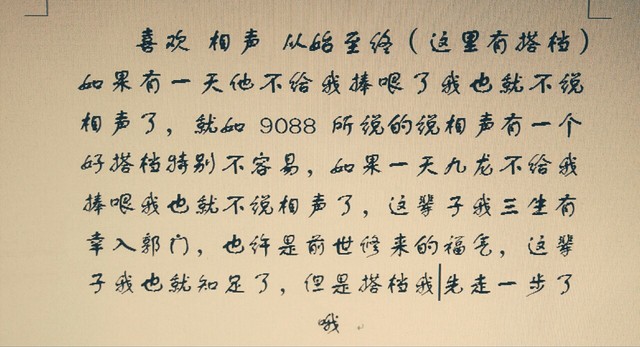 喜欢 相声 从始至终（这里有搭档）
如果有一天他不给我捧哏了我也就不说
相声了，就如 9088 所说的说相声有一个
好搭档特别不容易，如果一天九龙不给我
捧哏我也就不说相声了，这辈子我三生有
幸入郭门，也许是前世修来的福气，这辈
子我也就知足了，但是搭档我先走一步了
哦